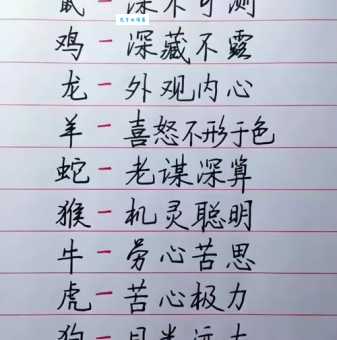 鼠-深不可测
鸡-深藏不露
龙-外观内心
羊-喜怒不形于色
蛇-老谋深算
猴-机灵聪明
牛-劳心苦思
虎-苦心极力